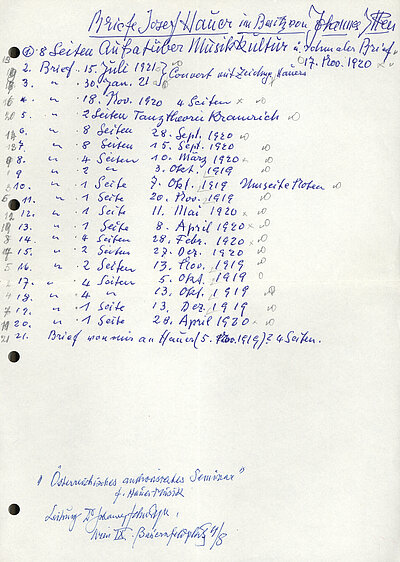 Briefe Josef Hauer im Besitz von Johannes Itten
1. 8 Seiten Aufsatz über Musikkultur u. schmaler Brief
17. Nov. 1920 x
2. Brief. 15. Juli 1921 } Couvert mit Zeichng Hauers
3. " 30. Jan. 21
4. " 18. Nov. 1920 4 Seiten x
5. " 2 Seiten Tanztheorie Kramrich
6. " 8 Seiten 28. Sept. 1920
7. " 8 Seiten 15. Sept. 1920
8. " 4 Seiten 10. März 1920 x
9 " 2 " 3. Okt. 1919
10. " 1 Seite 7. Okt. 1919 Umseite Noten
11. " 1 Seite 20. Nov. 1919
12. " 1 Seite 11. Mai 1920 x
13. " 1 Seite 8. April 1920 x
14. " 4 Seiten 28. Febr. 1920 x
15. " 2 Seiten 27. Dez. 1919
16. " 2 Seiten 13. Nov. 1919
17. " 4 Seiten 5. Okt. 1919
18. " 4 " 13. Okt. 1919
19. " 1 Seite 13. Dez. 1919
20. " 1 Seite 28. April 1920 x
21. Brief von mir an Hauer (5. Nov. 1919)? 4 Seiten.
"Österreichisches Seminar"
f. Hauer Musik
Leitung Dr Johannes
Wien IX. Bauernfeldplatz 4/8